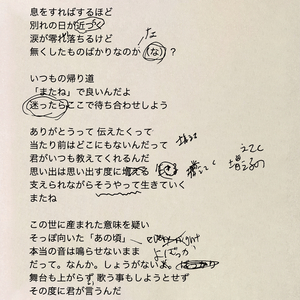 息をすればするほど
別れの日が近づく
な
涙が零れ落ちるけど
無くしたものばかりなのか(な)？
いつもの帰り道
「またね」で良いんだよ
迷ったらここで待ち合わせしよう
ありがとうって 伝えたくって
当たり前はどこにもないんだって
君がいつも教えてくれるんだ
思い出は思い出す度に増える
増えてく
えてく
増えるの
支えられながらそうやって生きていく
またね
この世に産まれた意味を疑い
そっぽ向いた「あの頃」
本当の音は鳴らせないまま
だって。なんか。しょうがないあ。
舞台も上がらず、歌う事もしようとせず
その度に君が言うんだ